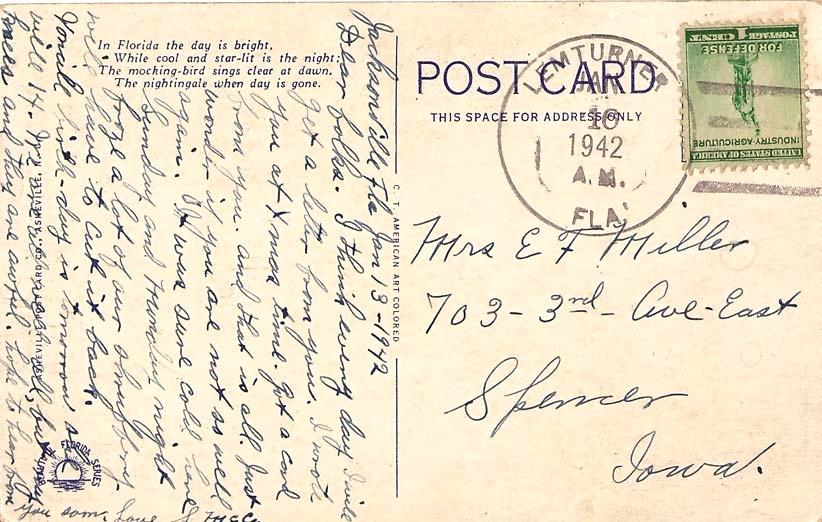 In Florida the day is bright,
While cool and star-lit is the night;
The mocking-bird sings clear at dawn.
The nightingale when day is gone.
POST CARD
THIS SPACE FOR ADDRESS ONLY
C. T. AMERICAN ART COLORED
ASHEVILLE POST CARD CO., ASHEVILLE, N.
FLORIDA SERIES
LEMTURNER
JAN
16
1942
A.M.
FLA.
POSTAGE 1 CENT
FOR DEFENSE
INDUSTRY-AGRICULTURE
UNITED STATES OF AMERICA
Mrs E F Miller
703 - 3rd - Ave-East
Spencer
Iowa.
Jacksonville Fla Jan 13-1942
Dear folks. I think every day I will
get a letter from you. I
you at Xmas time. Got a card
from you. and that is all. Just
wonder if you are not so well
again. It was sure cold here
Sunday and Monday night
froze a lot of our shrubbery.
will have to cut it back.
You birth-day is tomorrow
will 14. We are all well, but my
and they are awful. hope to hear from
you soon. Love